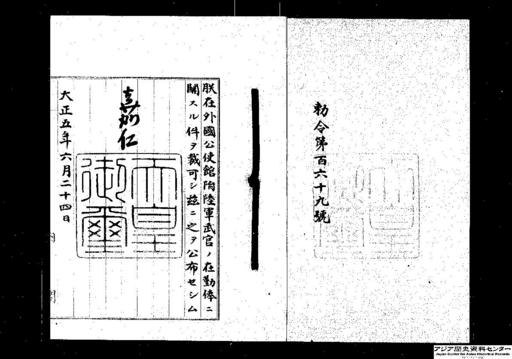 勅令第百六十九號
朕在外國公使館附陸軍武官ノ在勤俸ニ
關スル件ヲ裁可シ茲ニ之ヲ公布セシム
嘉仁
天皇
御璽
大正五年六月二十四日
内閣
アジア歴史資料センター
Japan Center for Asian Historical Records